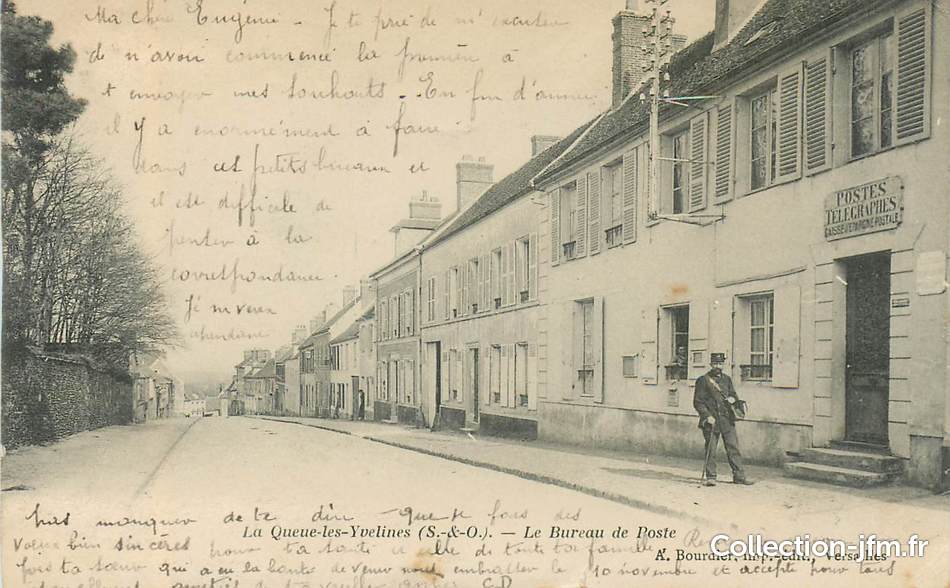 Ma chère Eugénie - Je te prie de m'excuser
de n'avoir commencé la première à
t envoyer mes souhaits - En fin d'année
il y a enormément à faire
dans ces petits bureaux et
il est difficile de
penser à la
correspondance
Je m'en veux
cependant
POSTES
TÉLÉGRAPHES
CAISSE D'ÉPARGNE POSTALE
pas manquer de te dire que je fais des
La Queue-les-Yvelines (S.-&-O.). — Le Bureau de Poste
voeux bien sincères pour ta santé et celle de toute ta famille
A. Bourdier, Versailles
Collection-jfm.fr
ta soeur qui a eu la bonté de venir nous embrasser le 10 novembre et accepte pour tous
C D